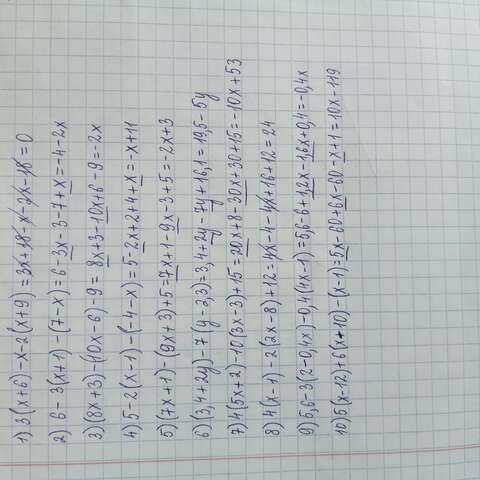 1) 3(x+6)-x-2(x+9)=3x+18-x-2x-18=0
2) 6-3(x+1)-(7-x)=6-3x-3-7+x=-4-2x
3) (8x+3)-(10x-6)-9=8x+3-10x+6-9=-2x
4) 5-2(x-1)-(-4-x)=5-2x+2+4+x=-x+11
5) (7x+1)-(9x+3)+5=7x+1-9x-3+5=-2x+3
6) (3,4+2y)-7(y-2,3)=3,4+2y-7y+16,1=19,5-5y
7) 4(5x+2)-10(3x-3)+15=20x+8-30x+30+15=-10x+53
8) 4(x-1)-2(2x-8)+12=4x-4-4x+16+12=24
9) 5,6-3(2-0,4x)-0,4(4x-1)=5,6-6+1,2x-1,6x+0,4=-0,4x
10) 5(x-12)+6(x+10)-(x-1)=5x-60+6x-60-x+1=10x-119